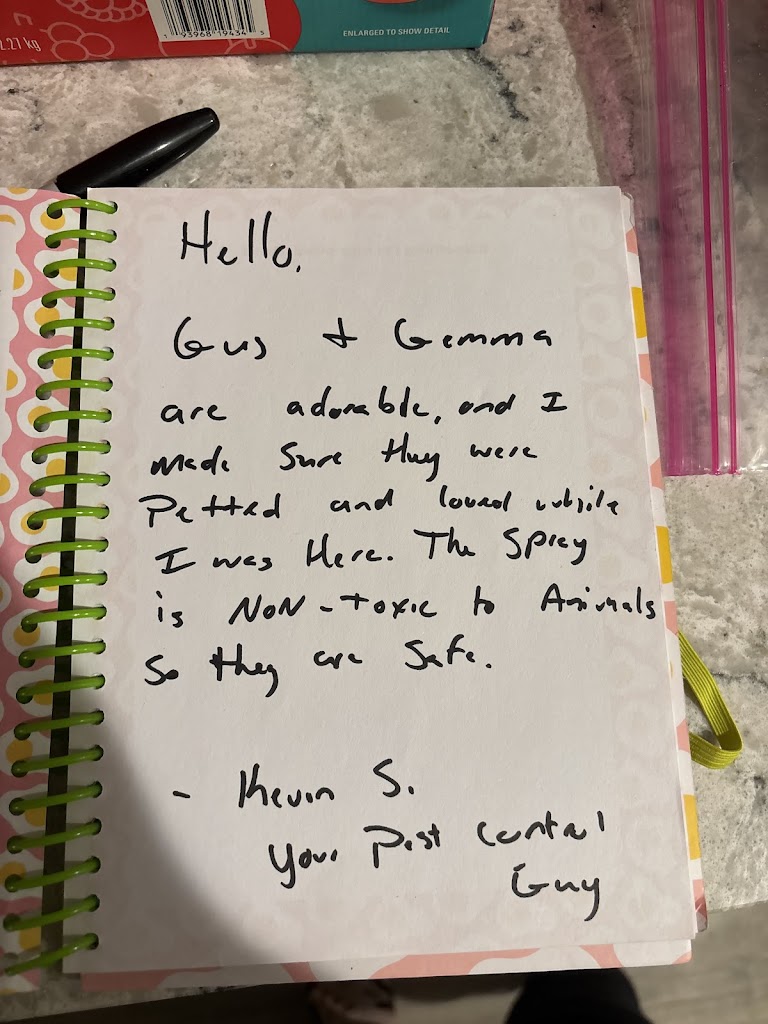 2.27 kg
1 93968 19434 3
ENLARGED TO SHOW DETAIL
Hello,
Gus & Gemma
are adorable, and I
made sure they were
Petted and loved while
I was Here. The Spray
is NON-toxic to Animals
So they are Safe.
- Kevin S.
Your Pest Control
Guy